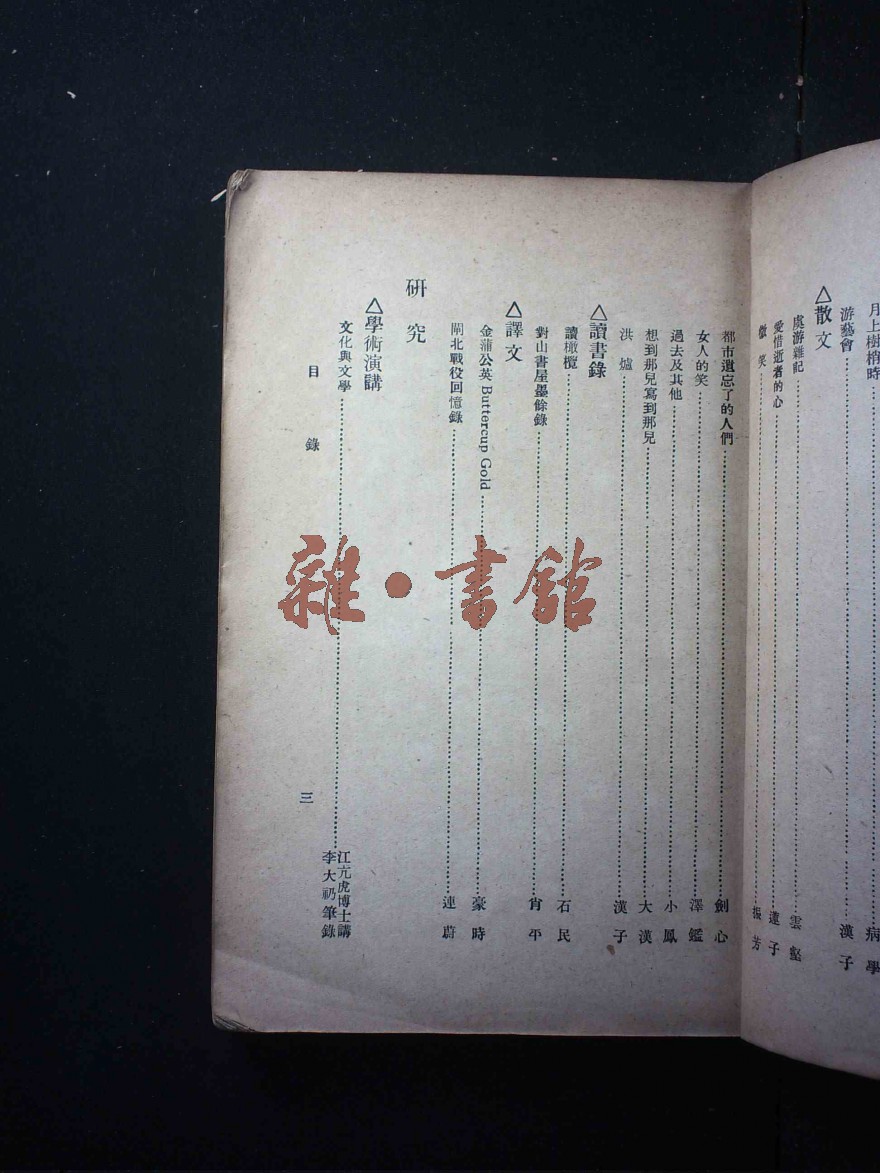 月上樹梢時……病學
游藝會……漢子
△散文
虞游雜記……雲壑
愛惜逝者的心……蓮子
微笑……振芳
都市遺忘了的人們……劍心
女人的笑……澤鑑
過去及其他……小鳳
想到那兒寫到那兒……大漢
洪爐……漢子
△讀書錄
讀橄欖……石民
對山書屋墨餘錄……肖平
△譯文
金蒲公英 Buttercup Gold……豪時
閘北戰役回憶錄……連蔚
研究
△學術演講
文化與文學……江亢虎博士講
李大礽筆錄
目錄
三
雜·書館